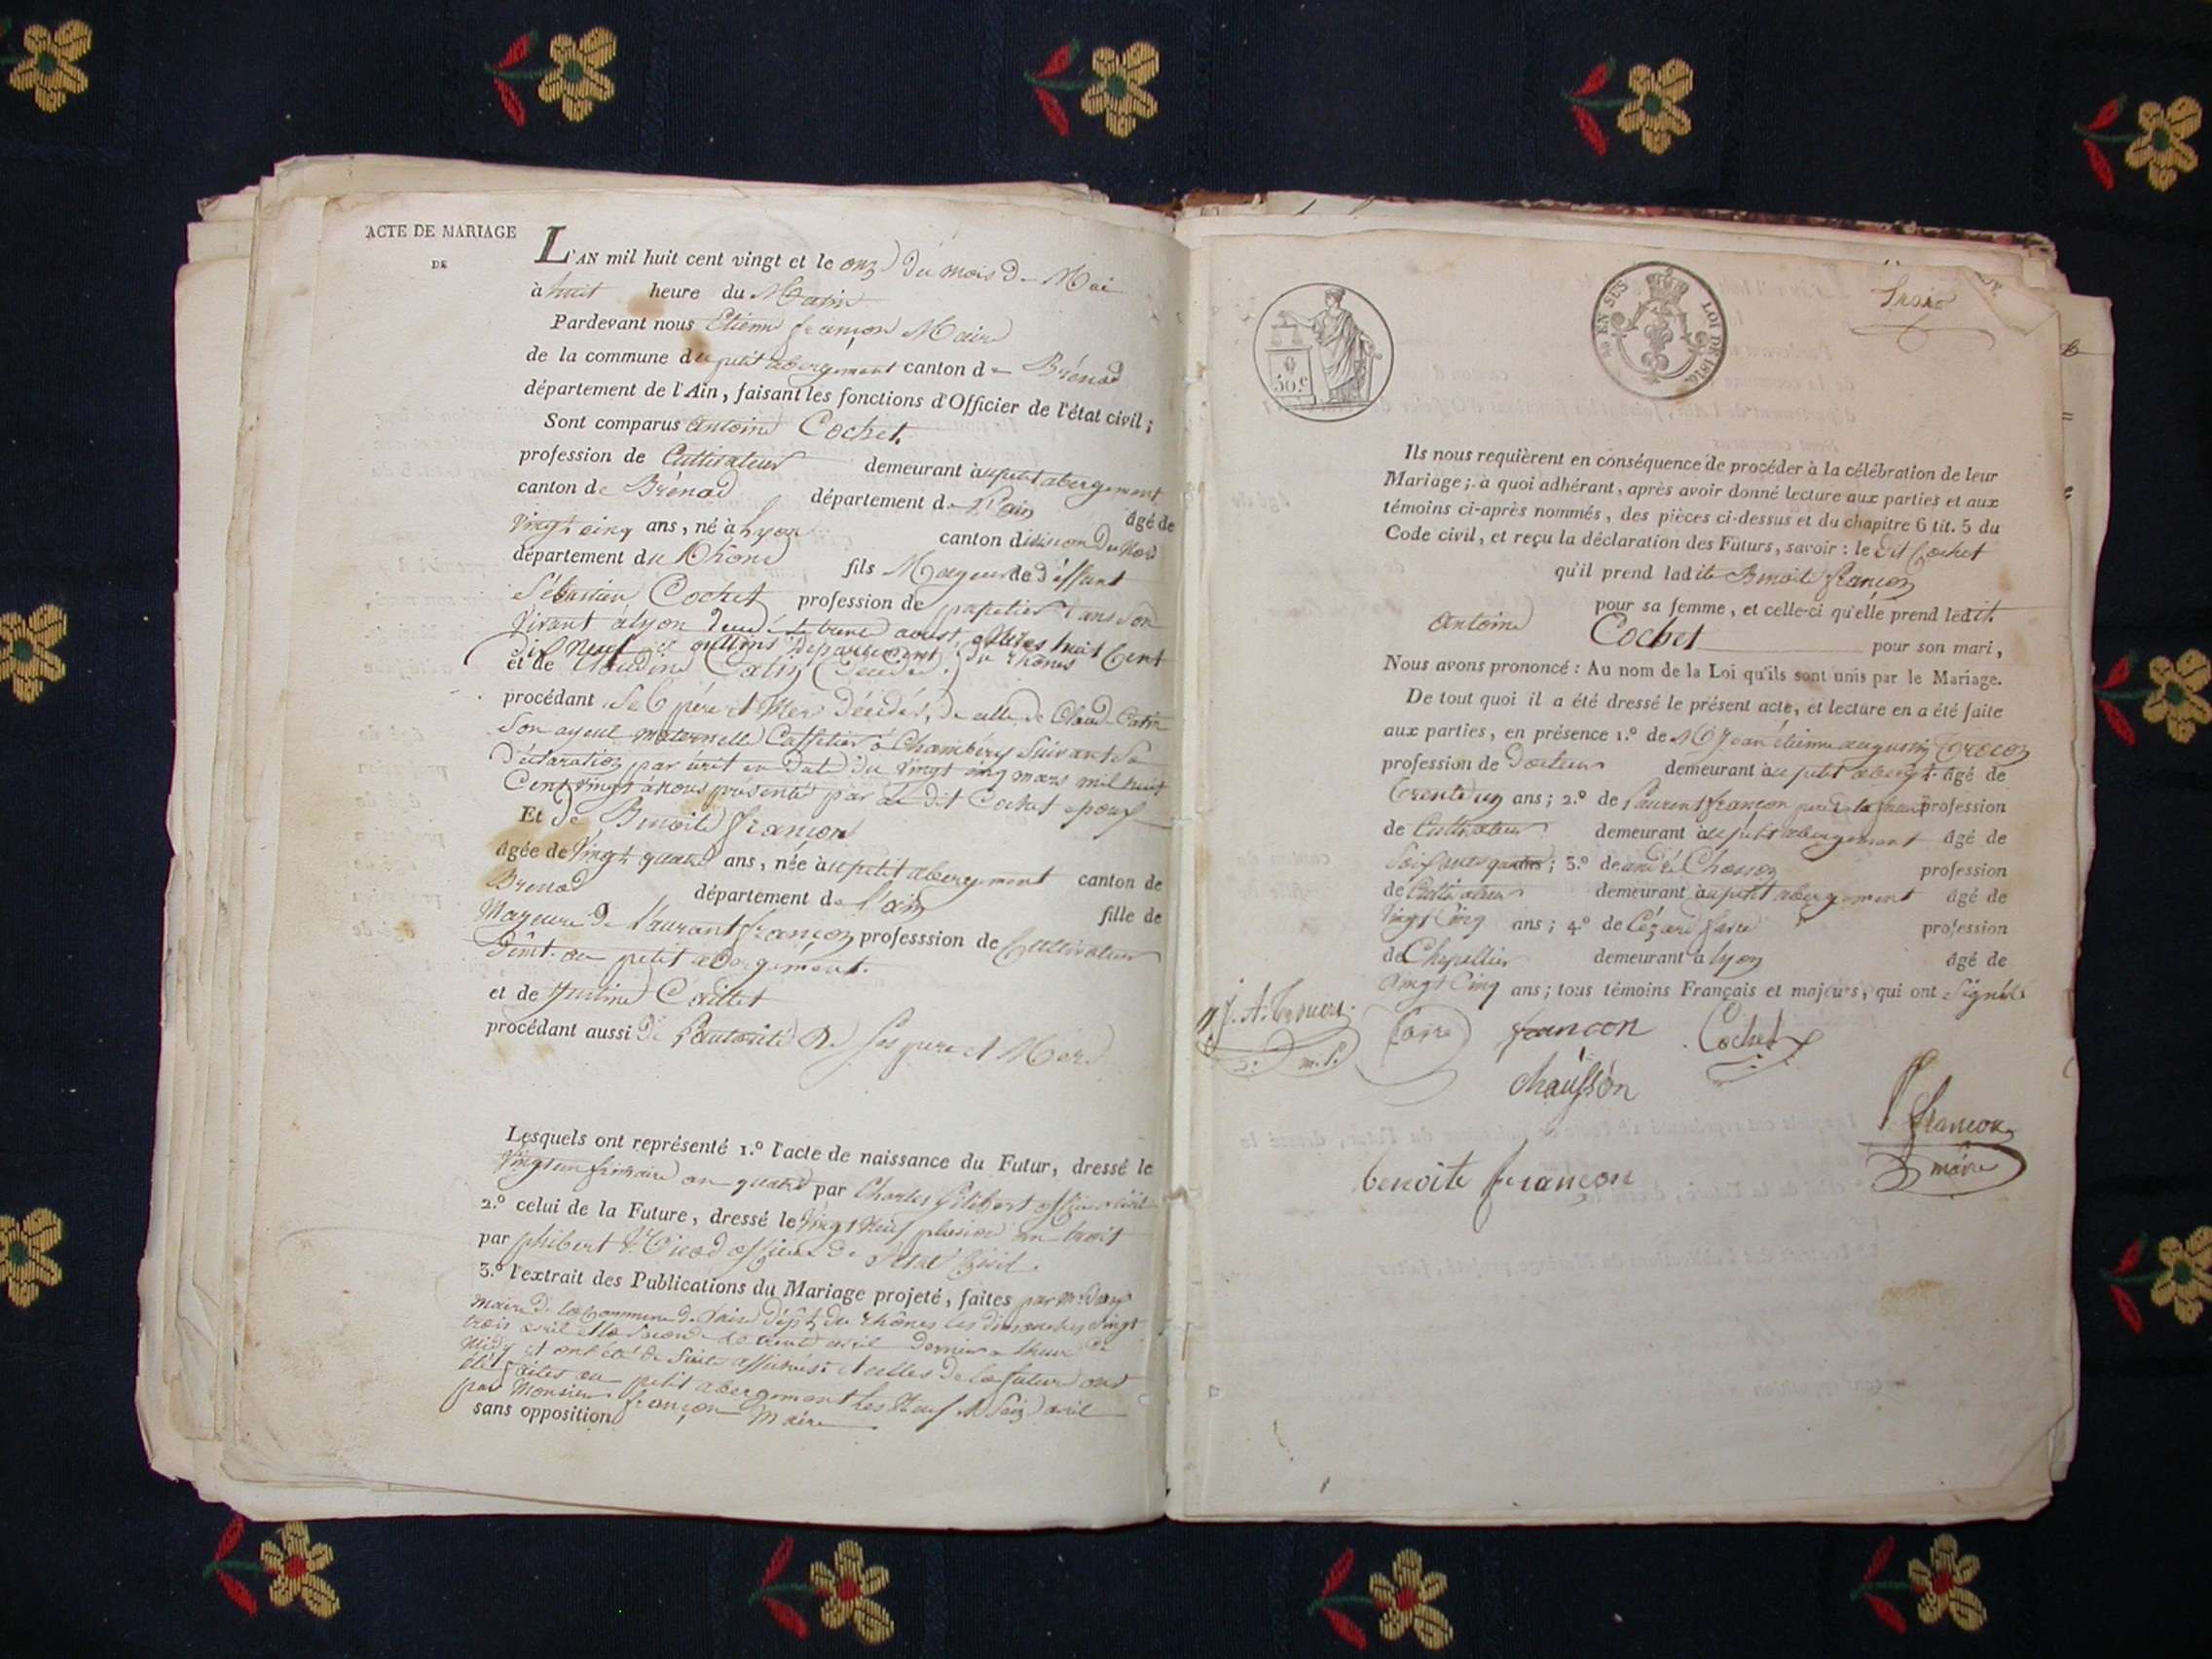 ACTE DE MARIAGE
DE
L'AN mil huit cent vingt et le onze du mois de Mai
à huit heure du Matin
Pardevant nous Etienne françon Maire
de la commune du petit abergement canton de Brénod
département de l'Ain, faisant les fonctions d'Officier de l'état civil;
Sont comparus antoine Cochet
profession de Cultivateur demeurant au petit abergement
canton de Brénod département de l'ain âgé de
vingt cinq ans, né à Lyon canton division du Nord
département du Rhône fils Mageur de déffunt
Sébastien Cochet profession de papetier dans son
vivant à lyon aoust huit Cent
dix Neuf département du Rhônes
et de Claudine Catin (décédée)
procédant de père et Mère décédés, de celle de Claude Catin
son ayeul maternelle à Chambéry suivant sa
déclaration par écrit en date du vingt cinq mars mil huit
Cent vingt à nous présenté par le dit Cochet epoux
Et de Benoite françon
âgée de vingt quatre ans, née au petit abergement canton de
Brenod département de l'ain fille de
Mageure de Laurant françon professsion de Cultivateur
au petit abergement.
et de Caillet
procédant aussi de l'autorité de ses pere et Mere
Lesquels ont représenté 1.º l'acte de naissance du Futur, dressé le
frimaire an quatre par Charles officier civil
2.º celui de la Future, dressé le vingt Neuf pluviose an trois
par philibert officier de l'état Civil.
3.º l'extrait des Publications du Mariage projeté, faites par Mr
maire de la Commune de dépt. du rhônes les dimanches vingt
trois avril et la seconde le trente avril dernier à l'heure de
Midy et ont été de suite affichés: et celles de la future ont
été faites au petit abergement les Neuf et Seize avril
par Monsieur françon Maire
sans opposition
50.c
EN SUS
LOI DE 1816.
Trois
Ils nous requièrent en conséquence de procéder à la célébration de leur
Mariage; à quoi adhérant, après avoir donné lecture aux parties et aux
témoins ci-après nommés, des pièces ci-dessus et du chapitre 6 tit. 5 du
Code civil, et reçu la déclaration des Futurs, savoir: le dit Cochet
qu'il prend ladite Benoite françon
pour sa femme, et celle-ci qu'elle prend ledit.
antoine Cochet pour son mari,
Nous avons prononcé: Au nom de la Loi qu'ils sont unis par le Mariage.
De tout quoi il a été dressé le présent acte, et lecture en a été faite
aux parties, en présence 1.º de Mr jean étienne augustin
profession de docteur demeurant au petit abergt. âgé de
trente un ans; 2.º de Laurent françon pere de la profession
de Cultivateur demeurant au petit abergement âgé de
soixante quatre; 3.º de andré Chosson profession
de Cultivateur demeurant au petit abergement âgé de
vingt cinq ans; 4.º de Cézard profession
de Chapellier demeurant à lyon âgé de
vingt cinq ans; tous témoins Français et majeurs, qui ont signés
françon Cochet
chausson
françon
maire
benoite françon